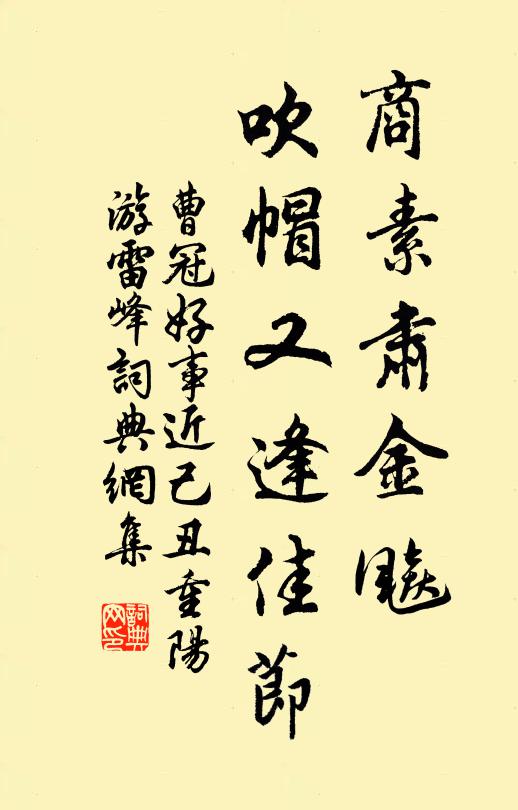 商素肅金飈
吹帽又逢佳節
曹冠好事近己丑重陽
游雷峰詞典網集
詞典網印